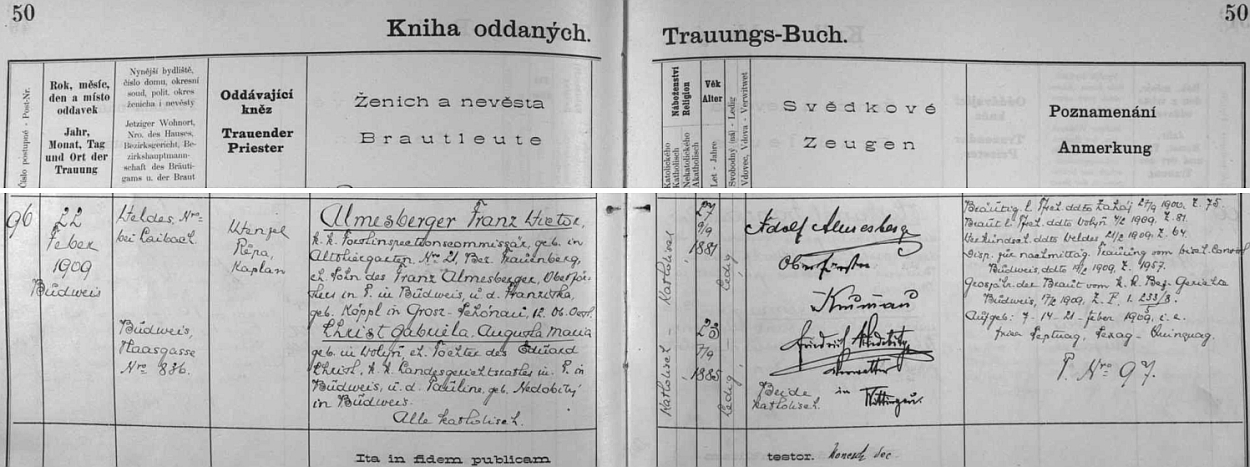 50
50
Kniha oddaných.
Trauungs-Buch.
Číslo postupné - Post-Nr.
Rok, měsíc,
den a místo
oddavek
Jahr,
Monat, Tag
und Ort der
Trauung
Nynější bydliště,
číslo domu, okresní
soud, polit. okres
ženicha i nevěsty
Jetziger Wohnort,
Nro. des Hauses,
Bezirksgericht, Be-
zirkshauptmann-
schaft des Bräuti-
gams u. der Braut
Oddávající
kněz
Trauender
Priester
Ženich a nevěsta
Brautleute
Náboženství
Religion
Katolického
Katholisch
Nekatolického
Akatholisch
Věk
Alter
Let - Jahre
Svobodný (ná) - Ledig
Vdovec, Vdova - Verwitwet
Svědkové
Zeugen
Poznamenání
Anmerkung
96
22
Feber
1909
Budweis
Veldes, Nro
bei Laibach
Budweis,
Haasgasse
Nro 886.
Wenzel
Řepa,
Kaplan
Almesberger Franz Victor,
k. k. Forstinspectionscommissär, geb. in
Althiergarten, Nr 21, Bez. Frauenberg,
eh. Sohn des Franz Almesberger, Oberför-
sters in P. in Budweis, u. d. Franziska,
geb. Köppl in Grosz-
Christ Gabriela Augusta Maria
geb. in Wolyň, eh. Tochter des Eduard
Christ, k. k. Landesgerichtsrates in P. in
Budweis, u. d. Pauline, geb. Nedobitý
in Budweis.
Alle katholisch.
Katholisch - Katholisch
27
9/9
1881
23
7/9
1885
Ledig
Ledig
Adolf Almesberger
Oberförster
Krumau
Friedrich
Verwalter
in Wittingau.
Beide
katholisch.
Verkündsch. ddto Veldes 21/2 1909, Z. 64.
Disp. für nachmittäg. Trauung vom bischöfl.
Budweis, ddto 1909, Z. 1957.
Grosjähr. der Braut vom k. k. Bez. Gerichte
Budweis, 17/2 1909, Z. P. I. 233/8.
Aufgeb: 7. - 14. - 21. Feber 1909, i. e.
Septuag, Sexag - Quinquag.
P. Nro 97.
Ita in fidem publicam
testor.